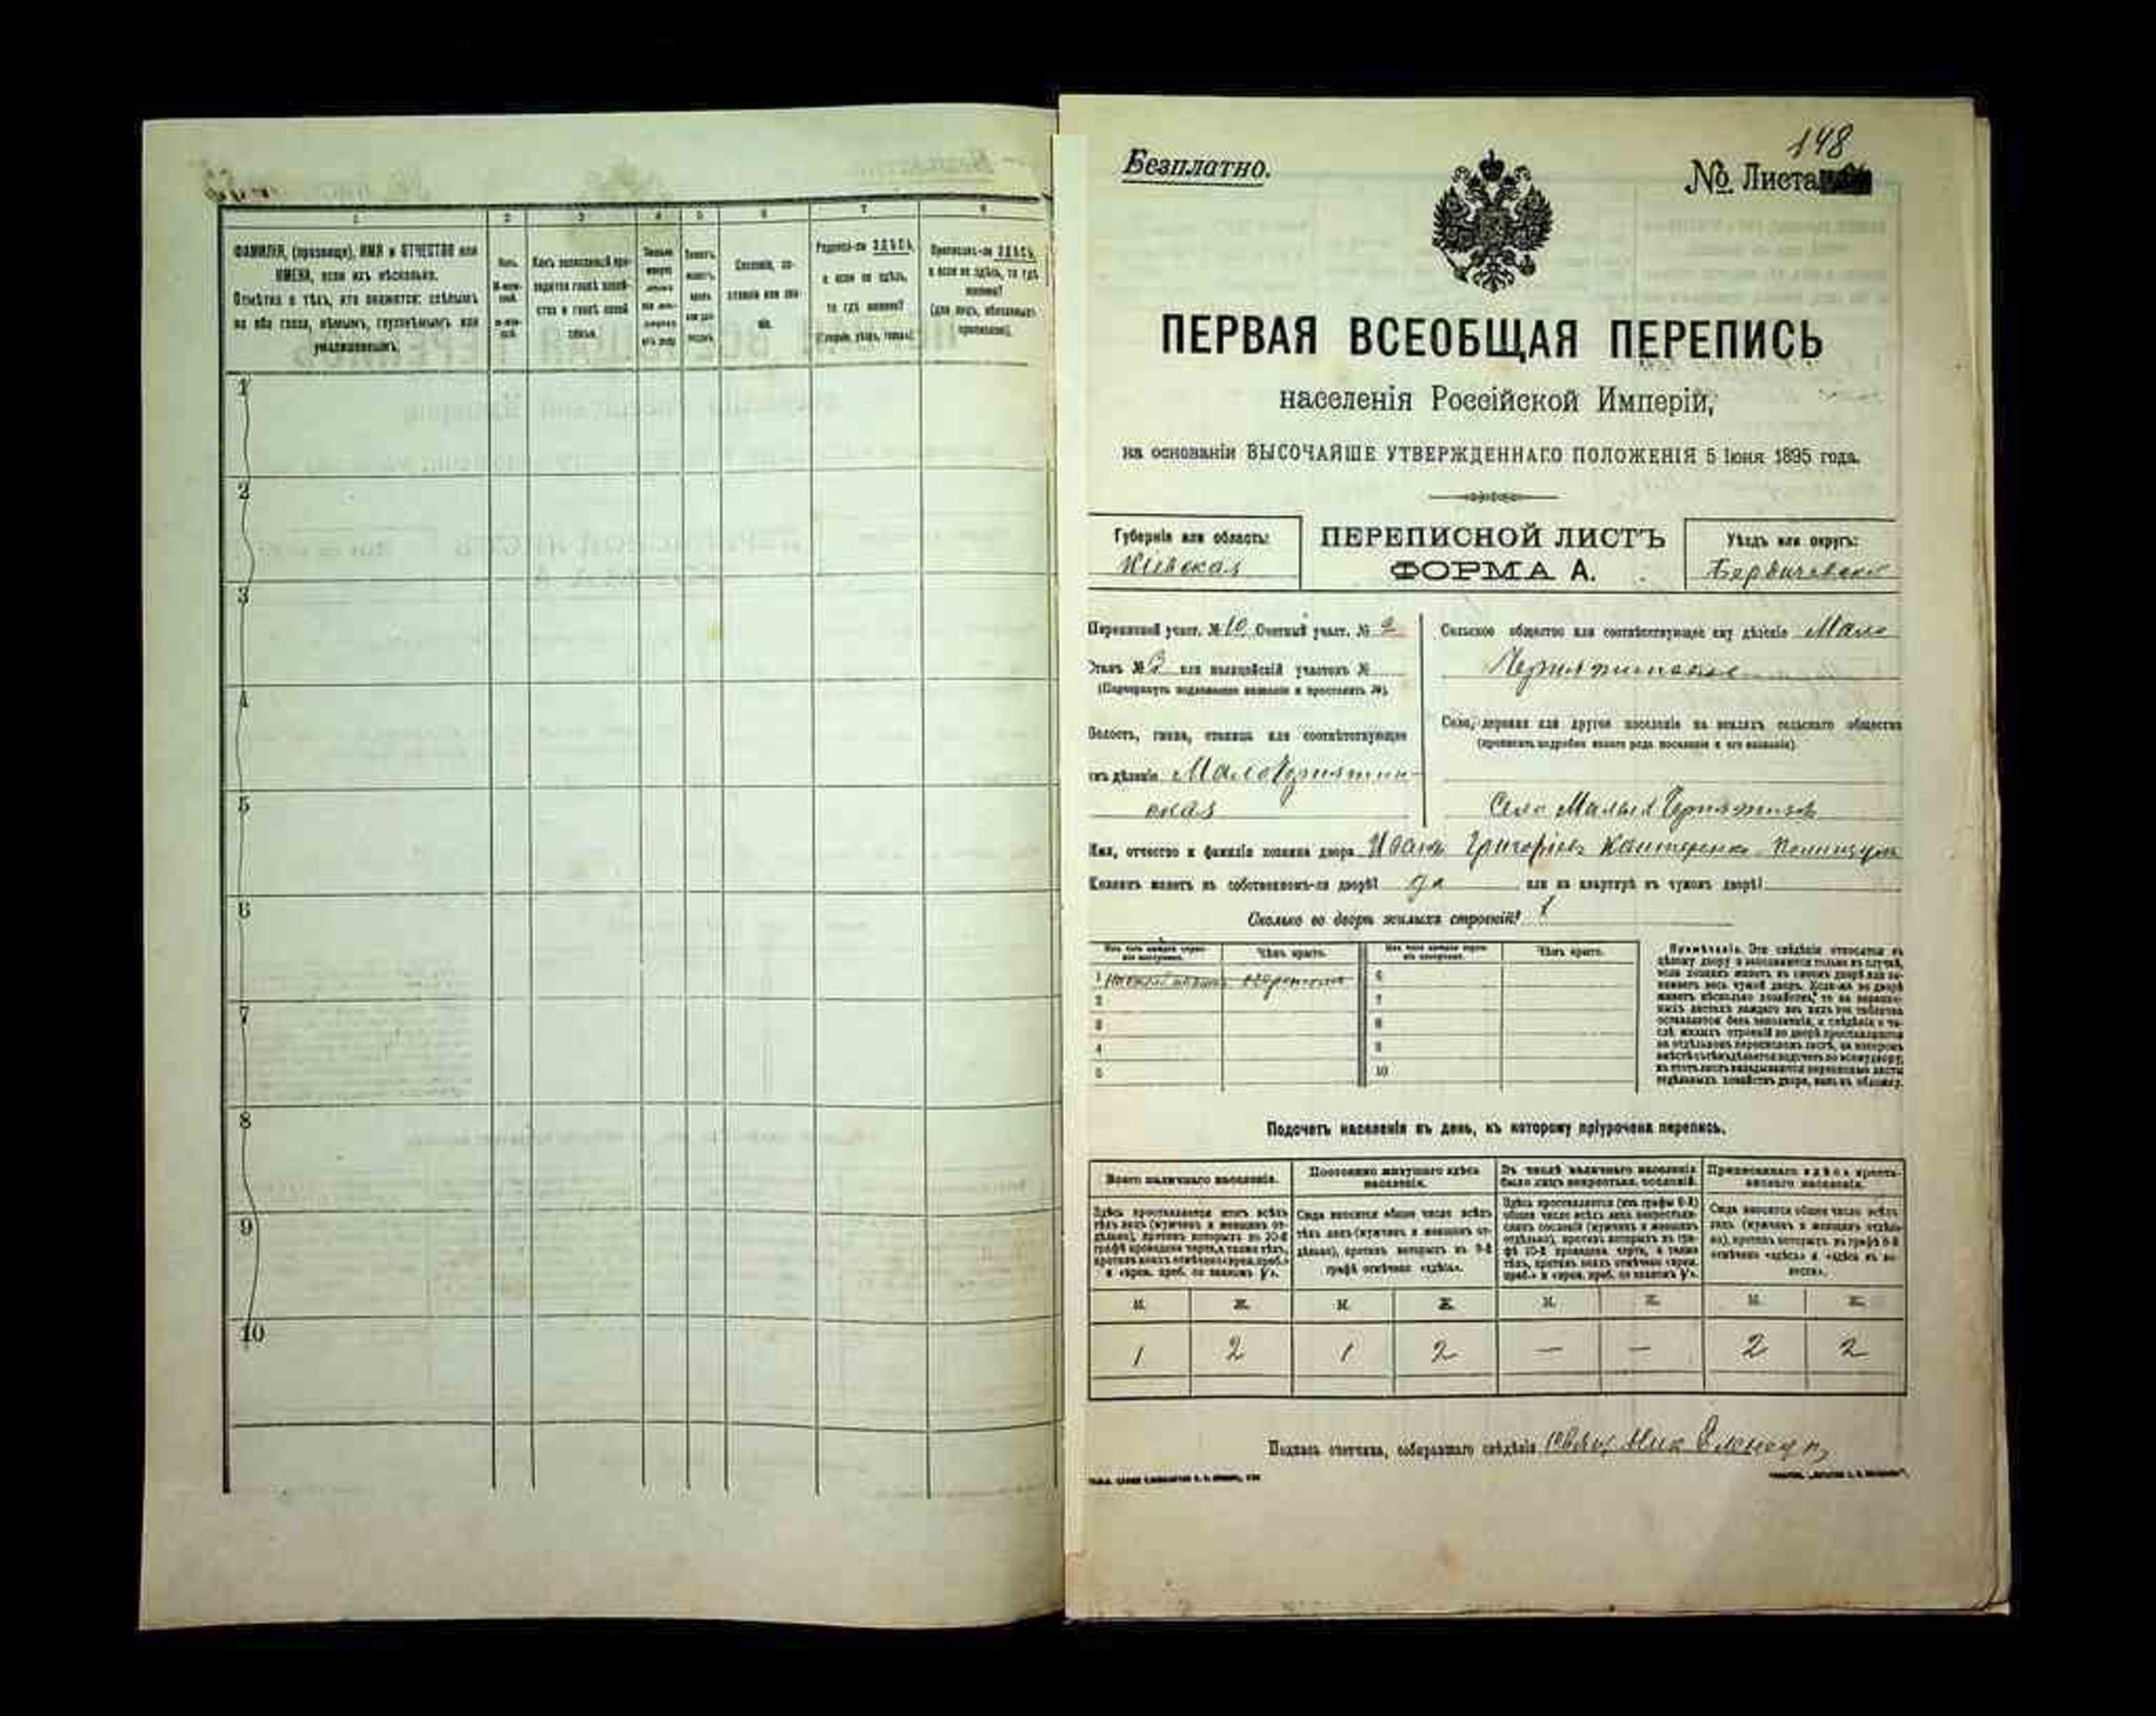 1 2 3 4 5 6 7 8
ФАМИЛІЯ, (прозвище), ИМЯ и ОТЧЕСТВО или
ИМЕНА, если ихъ нѣсколько.
Отмѣтка о тѣхъ, кто окажется: слѣпымъ
на оба глаза, нѣмымъ, глухонѣмымъ или
умалишеннымъ.
Полъ.
М-муж-
ской.
ж-жен-
скій.
Какъ записанный при-
ходится главѣ хозяй-
ства и главѣ своей
семьи.
Сословіе, со-
стояніе или зва-
ніе.
Родился-ли ЗДѢСЬ,
а если не здѣсь,
то гдѣ именно?
(Губернія, уѣздъ, городъ).
Приписанъ-ли ЗДѢСЬ,
а если не здѣсь, то гдѣ
именно?
(для лицъ, обязанныхъ
припискою).
1
2
3
4
5
6
7
8
9
10
148
Безплатно.
№ Листа
ПЕРВАЯ ВСЕОБЩАЯ ПЕРЕПИСЬ
населенія Россійской Имперіи,
на основаніи ВЫСОЧАЙШЕ УТВЕРЖДЕННАГО ПОЛОЖЕНІЯ 5 Іюня 1895 года.
Губернія или область:
Кіевская
ПЕРЕПИСНОЙ ЛИСТЪ
ФОРМА А.
Уѣздъ или округъ:
Бердичевскій
Переписной участ. № 10 Счетный участ. № 2
Станъ № 3 или полицейскій участокъ №
(Подчеркнуть подлежащее названіе и проставить №).
Волость, гмина, станица или соотвѣтствующее
имъ дѣленіе Малочернятин-
ская
Сельское общество или соотвѣтствующее ему дѣленіе Мало
Чернятинское
Село, деревня или другое поселеніе на земляхъ сельскаго общества
(прописать подробно какого рода поселеніе и его названіе).
Село Малый Чернятинъ
Имя, отчество и фамилія хозяина двора Иванъ Григорьевъ
Хозяинъ живетъ въ собственномъ-ли дворѣ? да или на квартирѣ въ чужомъ дворѣ?
Сколько во дворѣ жилыхъ строеній? 1
Чѣмъ крыто. Чѣмъ крыто.
1 6
2 7
3 8
4 9
5 10
Примѣчаніе. Эти свѣдѣнія относятся къ
цѣлому двору и заполняются только въ случаѣ,
если хозяинъ живетъ въ своемъ дворѣ или за-
нимаетъ весь чужой дворъ. Если-же во дворѣ
живетъ нѣсколько хозяйствъ, то на перепис-
ныхъ листахъ каждаго изъ нихъ эта табличка
оставляется безъ заполненія, а свѣдѣнія о чи-
слѣ жилыхъ строеній во дворѣ проставляются
на отдѣльномъ переписномъ листѣ, на которомъ
вмѣстѣ съ тѣмъ дѣлается подсчетъ по всему двору;
въ этотъ листъ вкладываются переписные листы
отдѣльныхъ хозяйствъ двора, какъ въ обложку.
Подсчетъ населенія въ день, къ которому пріурочена перепись.
Всего наличнаго населенія.
Постоянно живущаго здѣсь
населенія.
Въ числѣ наличнаго населенія
было лицъ некрестьян. сословій.
Приписаннаго здѣсь кресть-
янскаго населенія.
Здѣсь проставляется итогъ всѣхъ
тѣхъ лицъ (мужчинъ и женщинъ от-
дѣльно), противъ которыхъ въ 10-й
графѣ проведена черта, а также тѣхъ,
противъ коихъ отмѣчено «врем. преб.»
Сюда вносится общее число всѣхъ
тѣхъ лицъ (мужчинъ и женщинъ от-
дѣльно), противъ которыхъ въ 9-й
графѣ отмѣчено «здѣсь».
Здѣсь проставляется (изъ графы 6-й)
общее число всѣхъ лицъ некрестьян-
скихъ сословій (мужчинъ и женщинъ
отдѣльно), противъ которыхъ въ гра-
фѣ 10-й проведена черта, а также
тѣхъ, противъ коихъ отмѣчено «врем.
Сюда вносится общее число всѣхъ
лицъ (мужчинъ и женщинъ отдѣль-
но), противъ которыхъ въ графѣ 8-й
отмѣчено «здѣсь» и «здѣсь въ во-
лости».
М. Ж. М. Ж. М. Ж. М. Ж.
1 2 1 2 — — 2 2
Подпись счетчика, собиравшаго свѣдѣнія